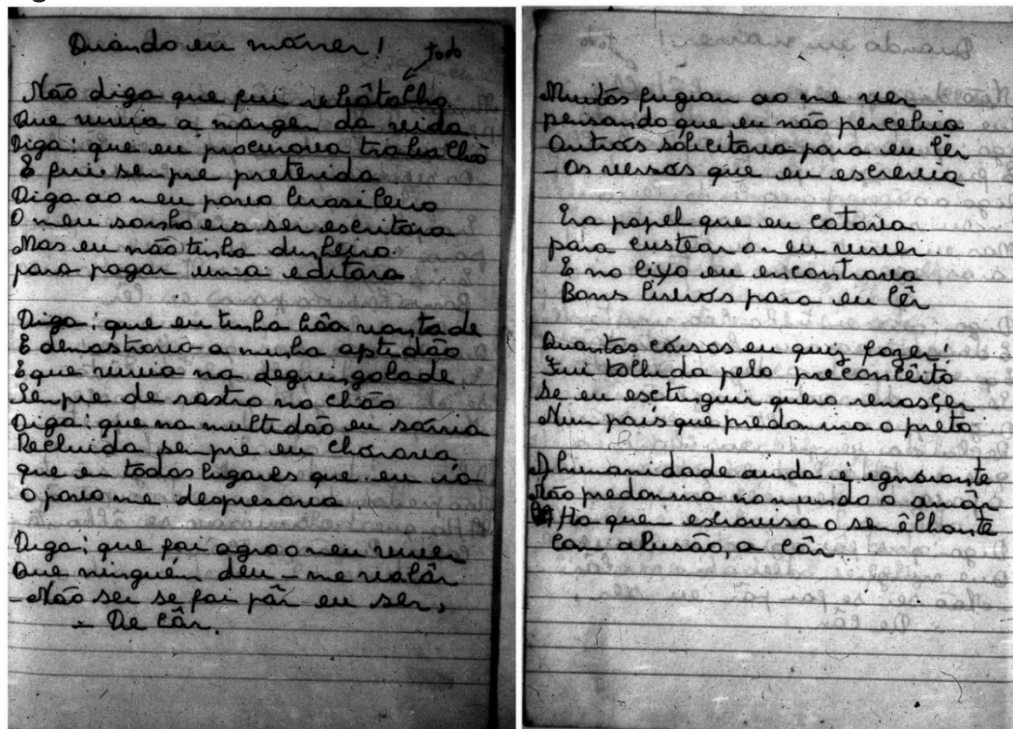 Quando eu mórrer!
todo
Não diga que fui rebôtalho
Que vivia a margem da vida
Diga: que eu procurava trabalho
E fui sempre preterida
Diga ao meu povo brasileiro
O meu sonho era ser escritora
Mas eu não tinha dinheiro
para pagar uma editora
Diga: que eu tinha bôa vontade
E demostrava a minha aptidão
E que vivia na degringolade
Sempre de rastro no chão
Diga: que na multidão eu sorria
Recluida sempre eu chorava
que em todos lugares que eu ia
O povo me despresava
Diga: que foi agro o meu viver
Que ninguém deu-me valôr
-Não sei se foi pôr eu ser,
- De côr.
Muitos fugiam ao me ver
pensando que eu não percebia
Outrós solicitava para eu lêr
-Os versós que eu escrevia
Era papel que eu catava
para custear o eu viver
E no lixo eu encontrava
Bons livrós para eu lêr
Quantas cóisas eu quiz fazer!
Fui tolhida pelo preconcêito
Se eu estinguir quero renascer
Num país que predomina o preto
A humanidade ainda é ignorante
Não predomina no mundo o amôr
Ha quem escraviza o semêlhante
Com alusão, a côr